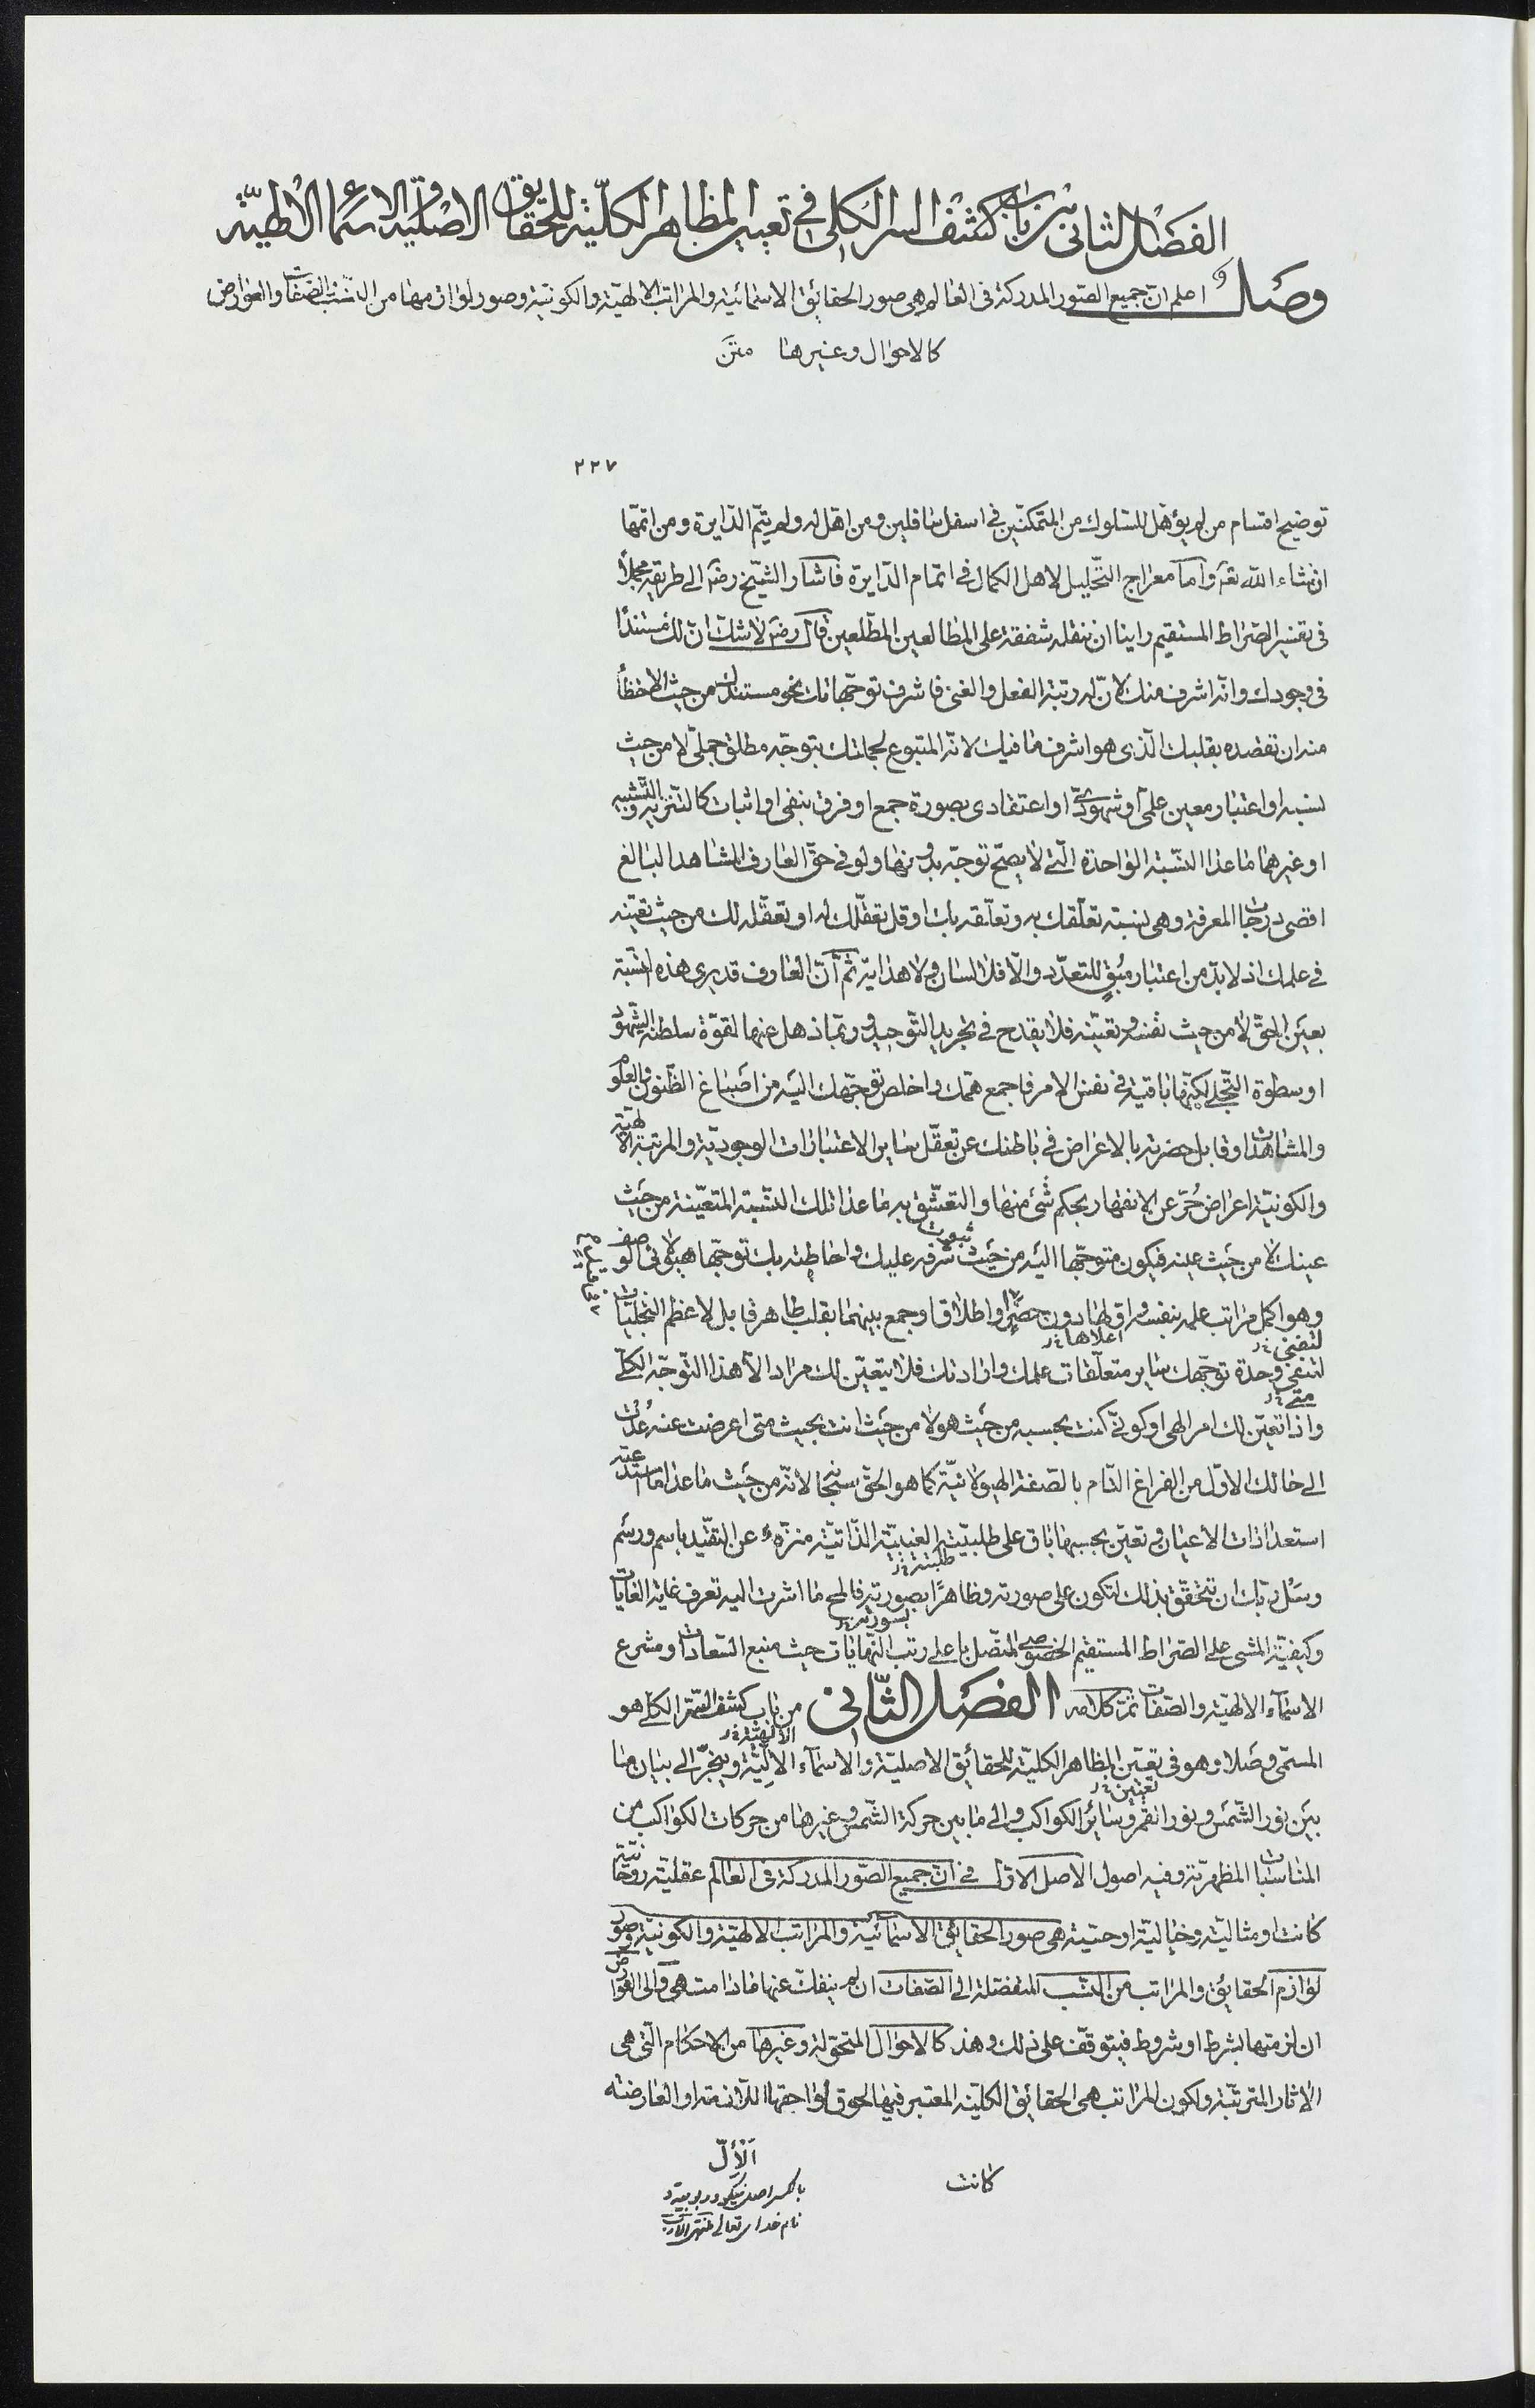 الفصل الثانى من باب كشف السر الكلى فى تعيين المظاهر الكليّة للحقايق الاصلية والاسماء الالهيّة
وصل اعلم انّ جميع الصّور المدركة فى العالم هى صور الحقايق الاسمائيّة والمراتب الالهيّة والكونيّة وصور لوازمها من النّسب والصّفات والعوارض
كالاحوال وغيرها متن
٢٢٧
توضيح اقسام من لم يؤهّل للسّلوك من المتمكنّين فى اسفل سافلين ومن اهّل له ولم يتمّ الدّايرة ومن اتمّها
ان شاء اللّه تعه وامّا معراج التّحليل لاهل الكمال فى اتمام الدّايرة فاشار الشّيخ رضه الى طريقه مجملاً
فى تفسير الصّراط المستقيم راينا ان ننقله شفقة على المطالعين المطّلعين قال رضه لا شكّ انّ لك مستنداً
فى وجودك وانّه اشرف منك لانّ له رتبة الفعل والغنى فاشرف توجّهاتك نحو مستندك من حيث الاحظأ
منه ان تقصده بقلبك الّذى هو اشرف ما فيك لانّه المتبوع لجملتك بتوجّه مطلق جملّى لا من حيث
نسبه او اعتبار معين علمىّ او شهودىّ او اعتقادى بصورة جمع او فرق بنفى او اثبات كالتّنزيه والتّشبيه
او غيرهما ما عدا النّسبة الواحدة الّتى لا يصحّ توجّه بدونها ولو فى حقّ العارف المشاهد البالغ
اقصى درجات المعرفة وهى نسبته تعلّقك به وتعلّقه بك او قل تعقّلك له او تعقّله لك من حيث تعيّنه
فى علمك اذ لا بدّ من اعتبار مبقٍ للتعدّد والّا فلا لسان ولا هداية ثمّ انّ العارف قد يرى هذه النسبة
بعين الحقّ لا من حيث نفسه وتعيّنه فلا يقدح فى تجريد التّوحيد وربّما ذهل عنها لقوّة سلطنة الشّهود
او سطوة التّجلّى لكنّها باقية فى نفس الامر فاجمع همّك واخلص توجّهك اليه من اصباغ الظّنون والعلوم
والمشاهدات وقابل حضرته بالاعراض فى باطنك عن تعقّل ساير الاعتبارات الوجوديّة والمرتبة الالهيّة
والكونيّة اعراض حُرّ عن الانقهار بحكم شىء منها والتعشّق به ما عدا تلك النّسبة المتعيّنة من حيث
عينك لا من حيث عينه فيكون متوجّها اليه من حيث ثبوت شرفه عليك واحاطته بك توجّها هيولانى الوصف
وهو اكمل مراتب علمه بنفسه واق لها دون حصر او اطلاق او جمع بينهما بقلب طاهر قابل لاعظم التجلّيات
اعلاها خ‌ل
لتضنى خ‌ل
لتنفى وحدة توجّهك ساير متعلّقات علمك وارادتك فلا يتعيّن لك مراد الّا هذا التّوجّه الكلّى
متى خ‌ل
واذا تعيّن لك امر الهى او كونىّ كنت بحسبه من حيث هو لا من حيث انت بحيث متى اعرضت عنه عُدت
الى حالك الاوّل من الفراغ التّام بالصّفة الهيولانيّة كما هو الحقّ سبحانه لانّه من حيث ما عدا ما استدعته
استعدادات الاعيان وتعيّن بحسبها باق على طلبيّته الغيبيّة الذّاتيّة منزّه عن التقيّد باسم ورسم
وسَل ربّك ان تتحقّق بذلك لتكون على صورته وظاهرًا بصورته فالمح ما اشرت اليه تعرف غاية الغايات
بسورته خ‌ل
وكيفيّة المشى على الصّراط المستقيم الخصوصى المتّصل باعلى رتب النّهايات حيث منبع السّعادات ومشرع
الاسماء الالهيّة والصّفات تمّ كلامه الفصل الثّانى من باب كشف السّرّ الكلّى هو
الالهيّة خ‌ل
المسمّى وصلا وهو فى تعيين المظاهر الكليّة للحقائق الاصليّة والاسماء الالّيّة وينجرّ الى بيان ما
تعيّن خ‌ل
بين نور الشّمس ونور القمر وسائر الكواكب والى ما بين حركة الشّمس وغيرها من حركات الكواكب من
المناسبات المظهريّة وفيه اصول الاصل الاوّل فى انّ جميع الصّور المدركة فى العالم عقليّة روحانيّة
كانت او مثاليّة وخياليّة او حسّية هى صور الحقائق الاسمائيّة والمراتب الالهيّة والكونيّة وصور
لوازم الحقايق والمراتب من النّسب المنفصلة الى الصّفات ان لم ينفكّ عنها مادامت هى والى العوارض
ان لزمتها بشرط او شروط فيتوقّف على ذلك وهذه كالاحوال المتحوّلة وغيرها من الاحكام الّتى هى
الاثار المترتّبة ولكون المراتب هى الحقائق الكليّة المعتبر فيها لحوق لواحقها اللّازمة او العارضة
كانت
اَلْاِلّ
بالكسر اصل نيكو وربوبيّة و
نام خداى تعالى منتهى الارب